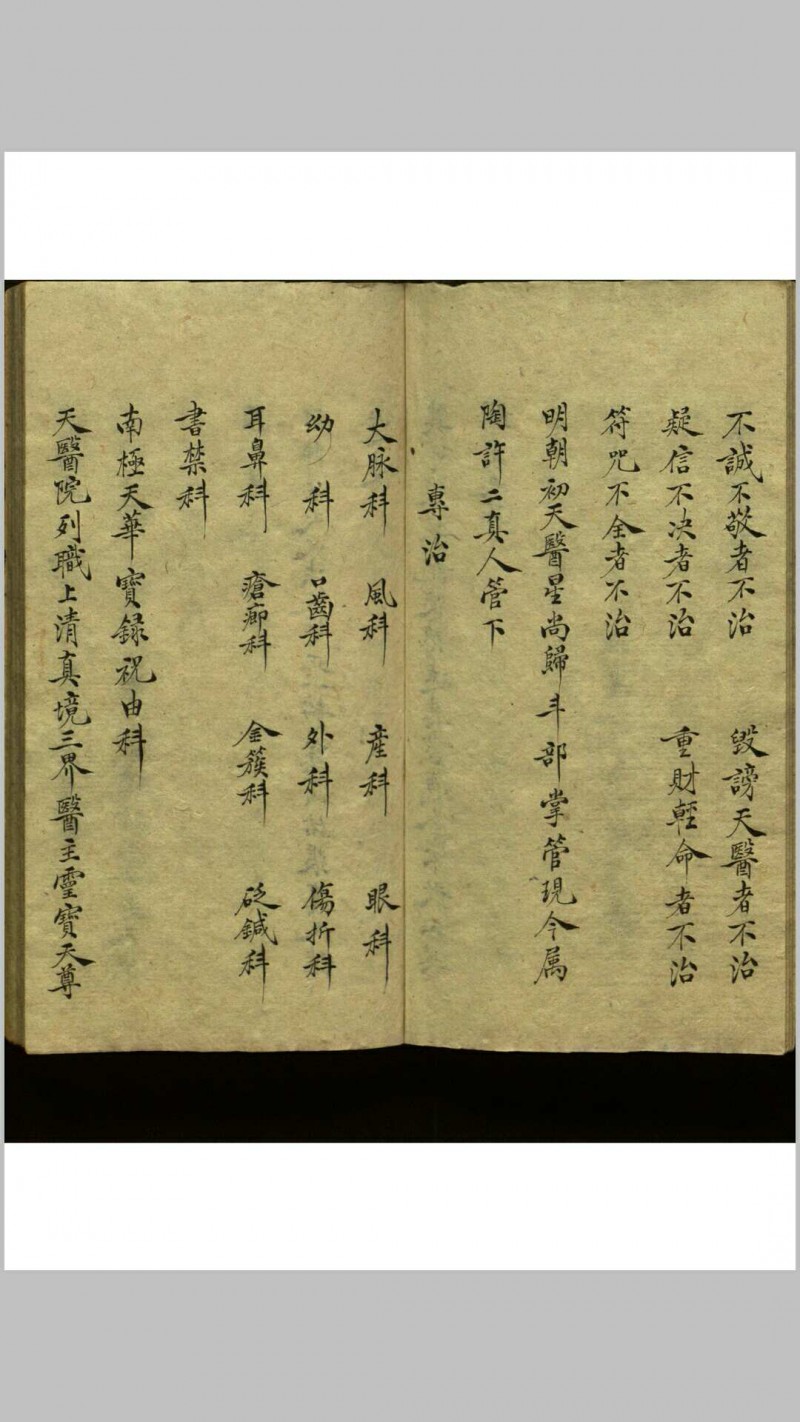 不誠不敬者不治　毀謗天醫者不治
疑信不决者不治　重財輕命者不治
符咒不全者不治
明朝初天醫星尚歸斗部掌管現今属
陶許二真人管下
專治
大脉科　風科　產科　眼科
幼科　口齒科　外科　傷折科
耳鼻科　瘡癤科　金簇科　砭鍼科
書禁科
南極天華寶録祝由科
天醫院列職上清真境三界醫主靈寶天尊